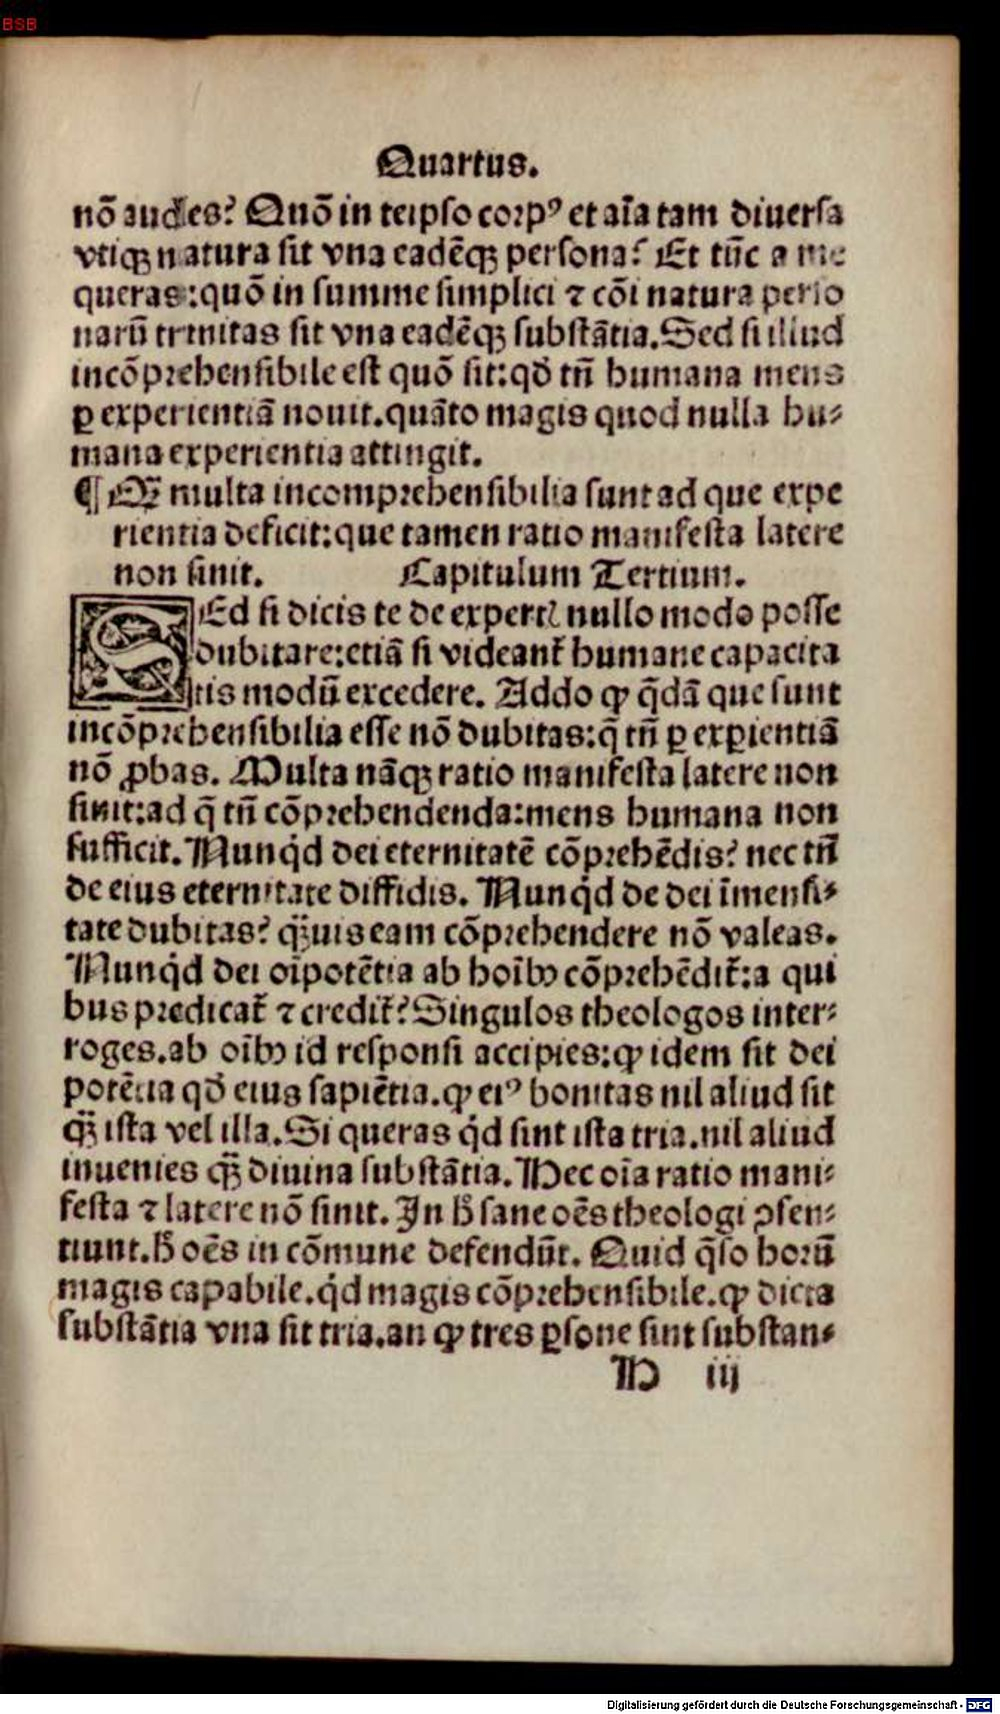 BSB
Quartus.
nō audes? Quō in teipso corpꝰ et aīa tam diuersa
vtiqꝫ natura sit vna eadēqꝫ persona? Et tūc a me
queras: quō in summe simplici ⁊ cōi natura perso
narū trinitas sit vna eadēqꝫ substātia. Sed si illud
incōprehensibile est quō sit: qđ tn̄ humana mens
ꝑ experientiā nouit. quāto magis quod nulla hu⸗
mana experientia attingit.
¶ Qꝫ multa incomprehensibilia sunt ad que expe
rientia deficit: que tamen ratio manifesta latere
non sinit. Capitulum Tertium.
SEd si dicis te de expertꝭ nullo modo posse
dubitare: etiā si videant᷑ humane capacita
tis modū excedere. Addo ꝙ q̄dā que sunt
incōprehensibilia esse nō dubitas: q̄ tn̄ ꝑ exꝑientiā
nō ꝓbas. Multa nāqꝫ ratio manifesta latere non
sinit: ad q̄ tn̄ cōprehendenda: mens humana non
sufficit. Nunqͥd dei eternitatē cōprehēdis? nec tn̄
de eius eternitate diffidis. Nunqͥd de dei īmensi⸗
tate dubitas? qꝫuis eam cōprehendere nō valeas.
Nunqͥd dei oīpotētia ab hoībꝰ cōprehēdit᷑: a qui
bus predicat᷑ ⁊ credit᷑? Singulos theologos inter⸗
roges. ab oībꝰ id responsi accipies: ꝙ idem sit dei
potētia qđ eius sapiētia. ꝙ eiꝰ bonitas nil aliud sit
qꝫ ista vel illa. Si queras qͥd sint ista tria. nil aliud
inuenies qꝫ diuina substātia. Hec oīa ratio mani⸗
festa ⁊ latere nō sinit. In h̄ sane oēs theologi ꝯsen⸗
tiunt. h̄ oēs in cōmune defendūt. Quid q̄so horū
magis capabile. qͥd magis cōprehensibile. ꝙ dicta
substātia vna sit tria. an ꝙ tres ꝑsone sint substan⸗
H iij
Digitalisierung gefördert durch die Deutsche Forschungsgemeinschaft - DFG